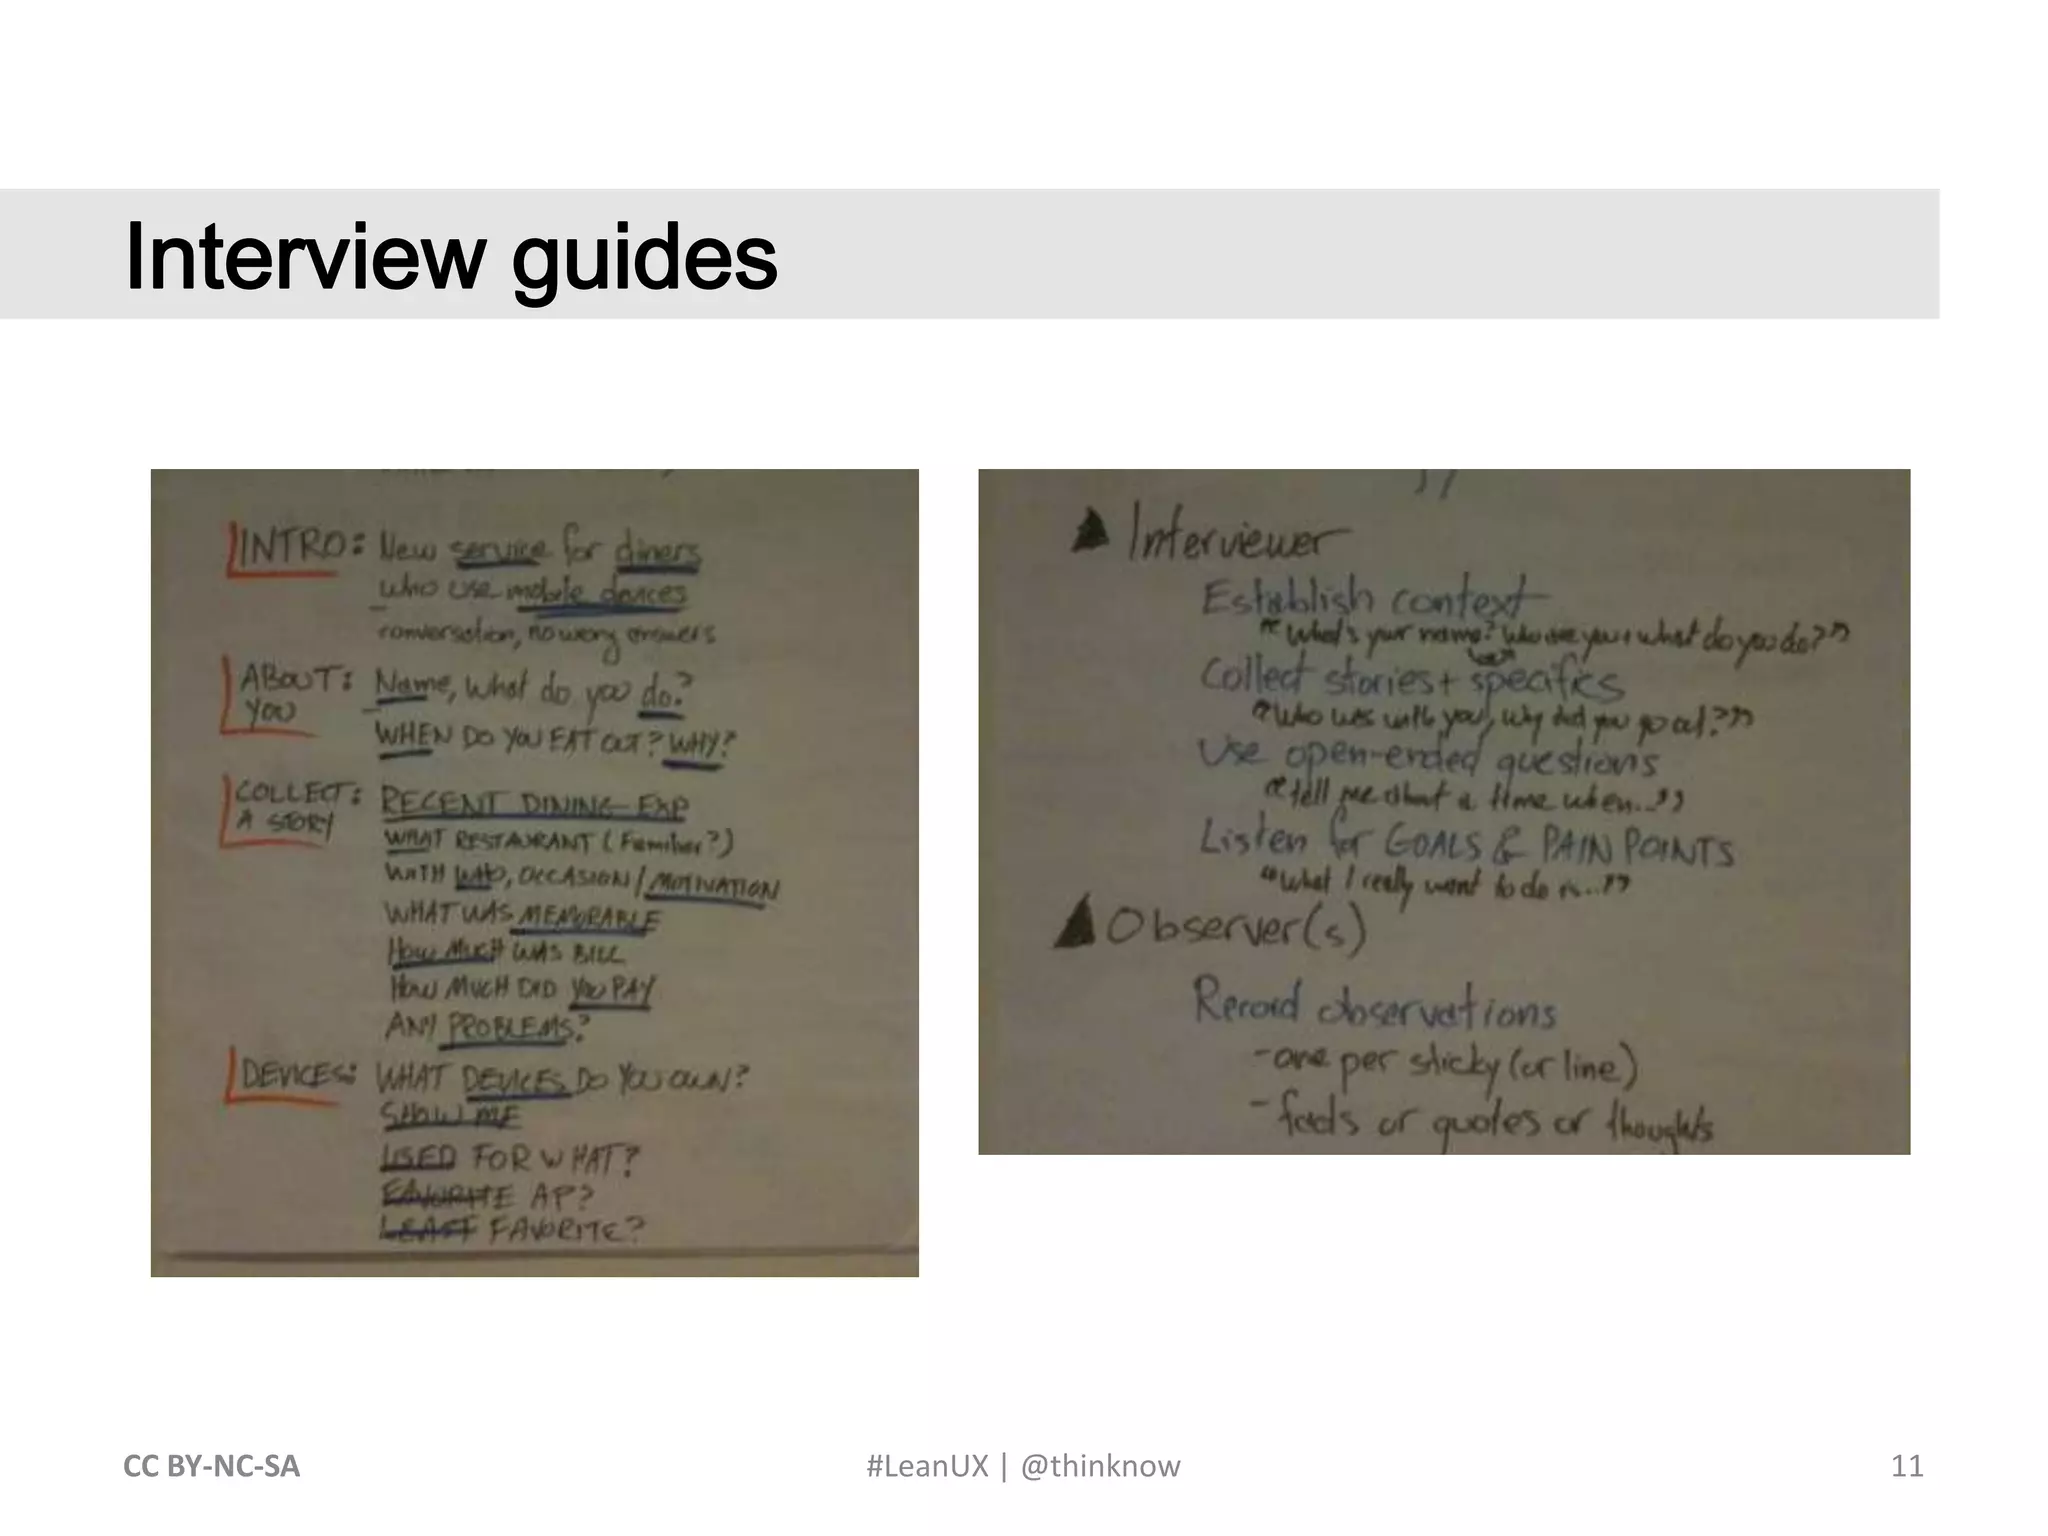 Interview guides
INTRO: New service for diners
who use mobile devices
conversation, no wrong answers
ABOUT: Name, what do you do?
YOU
WHEN DO YOU EAT OUT? WHY?
COLLECT: RECENT DINING EXP
A STORY
WHAT RESTAURANT (Familiar?)
WITH WHO, OCCASION/MOTIVATION
WHAT WAS MEMORABLE
HOW MUCH WAS BILL
HOW MUCH DID YOU PAY
ANY PROBLEMS?
DEVICES: WHAT DEVICES DO YOU OWN?
SHOW ME
USED FOR WHAT?
FAVORITE AP?
LEAST FAVORITE?
Interviewer
Establish context
"What's your name? Who are you + what do you do?"
Collect stories + specifics
"Who was with you, why did you go out?"
Use open-ended questions
"tell me about a time when..."
Listen for GOALS & PAIN POINTS
"what I really want to do is..."
Observer(s)
Record observations
- one per sticky (or line)
- facts or quotes or thoughts
CC BY-NC-SA
#LeanUX | @thinknow
11